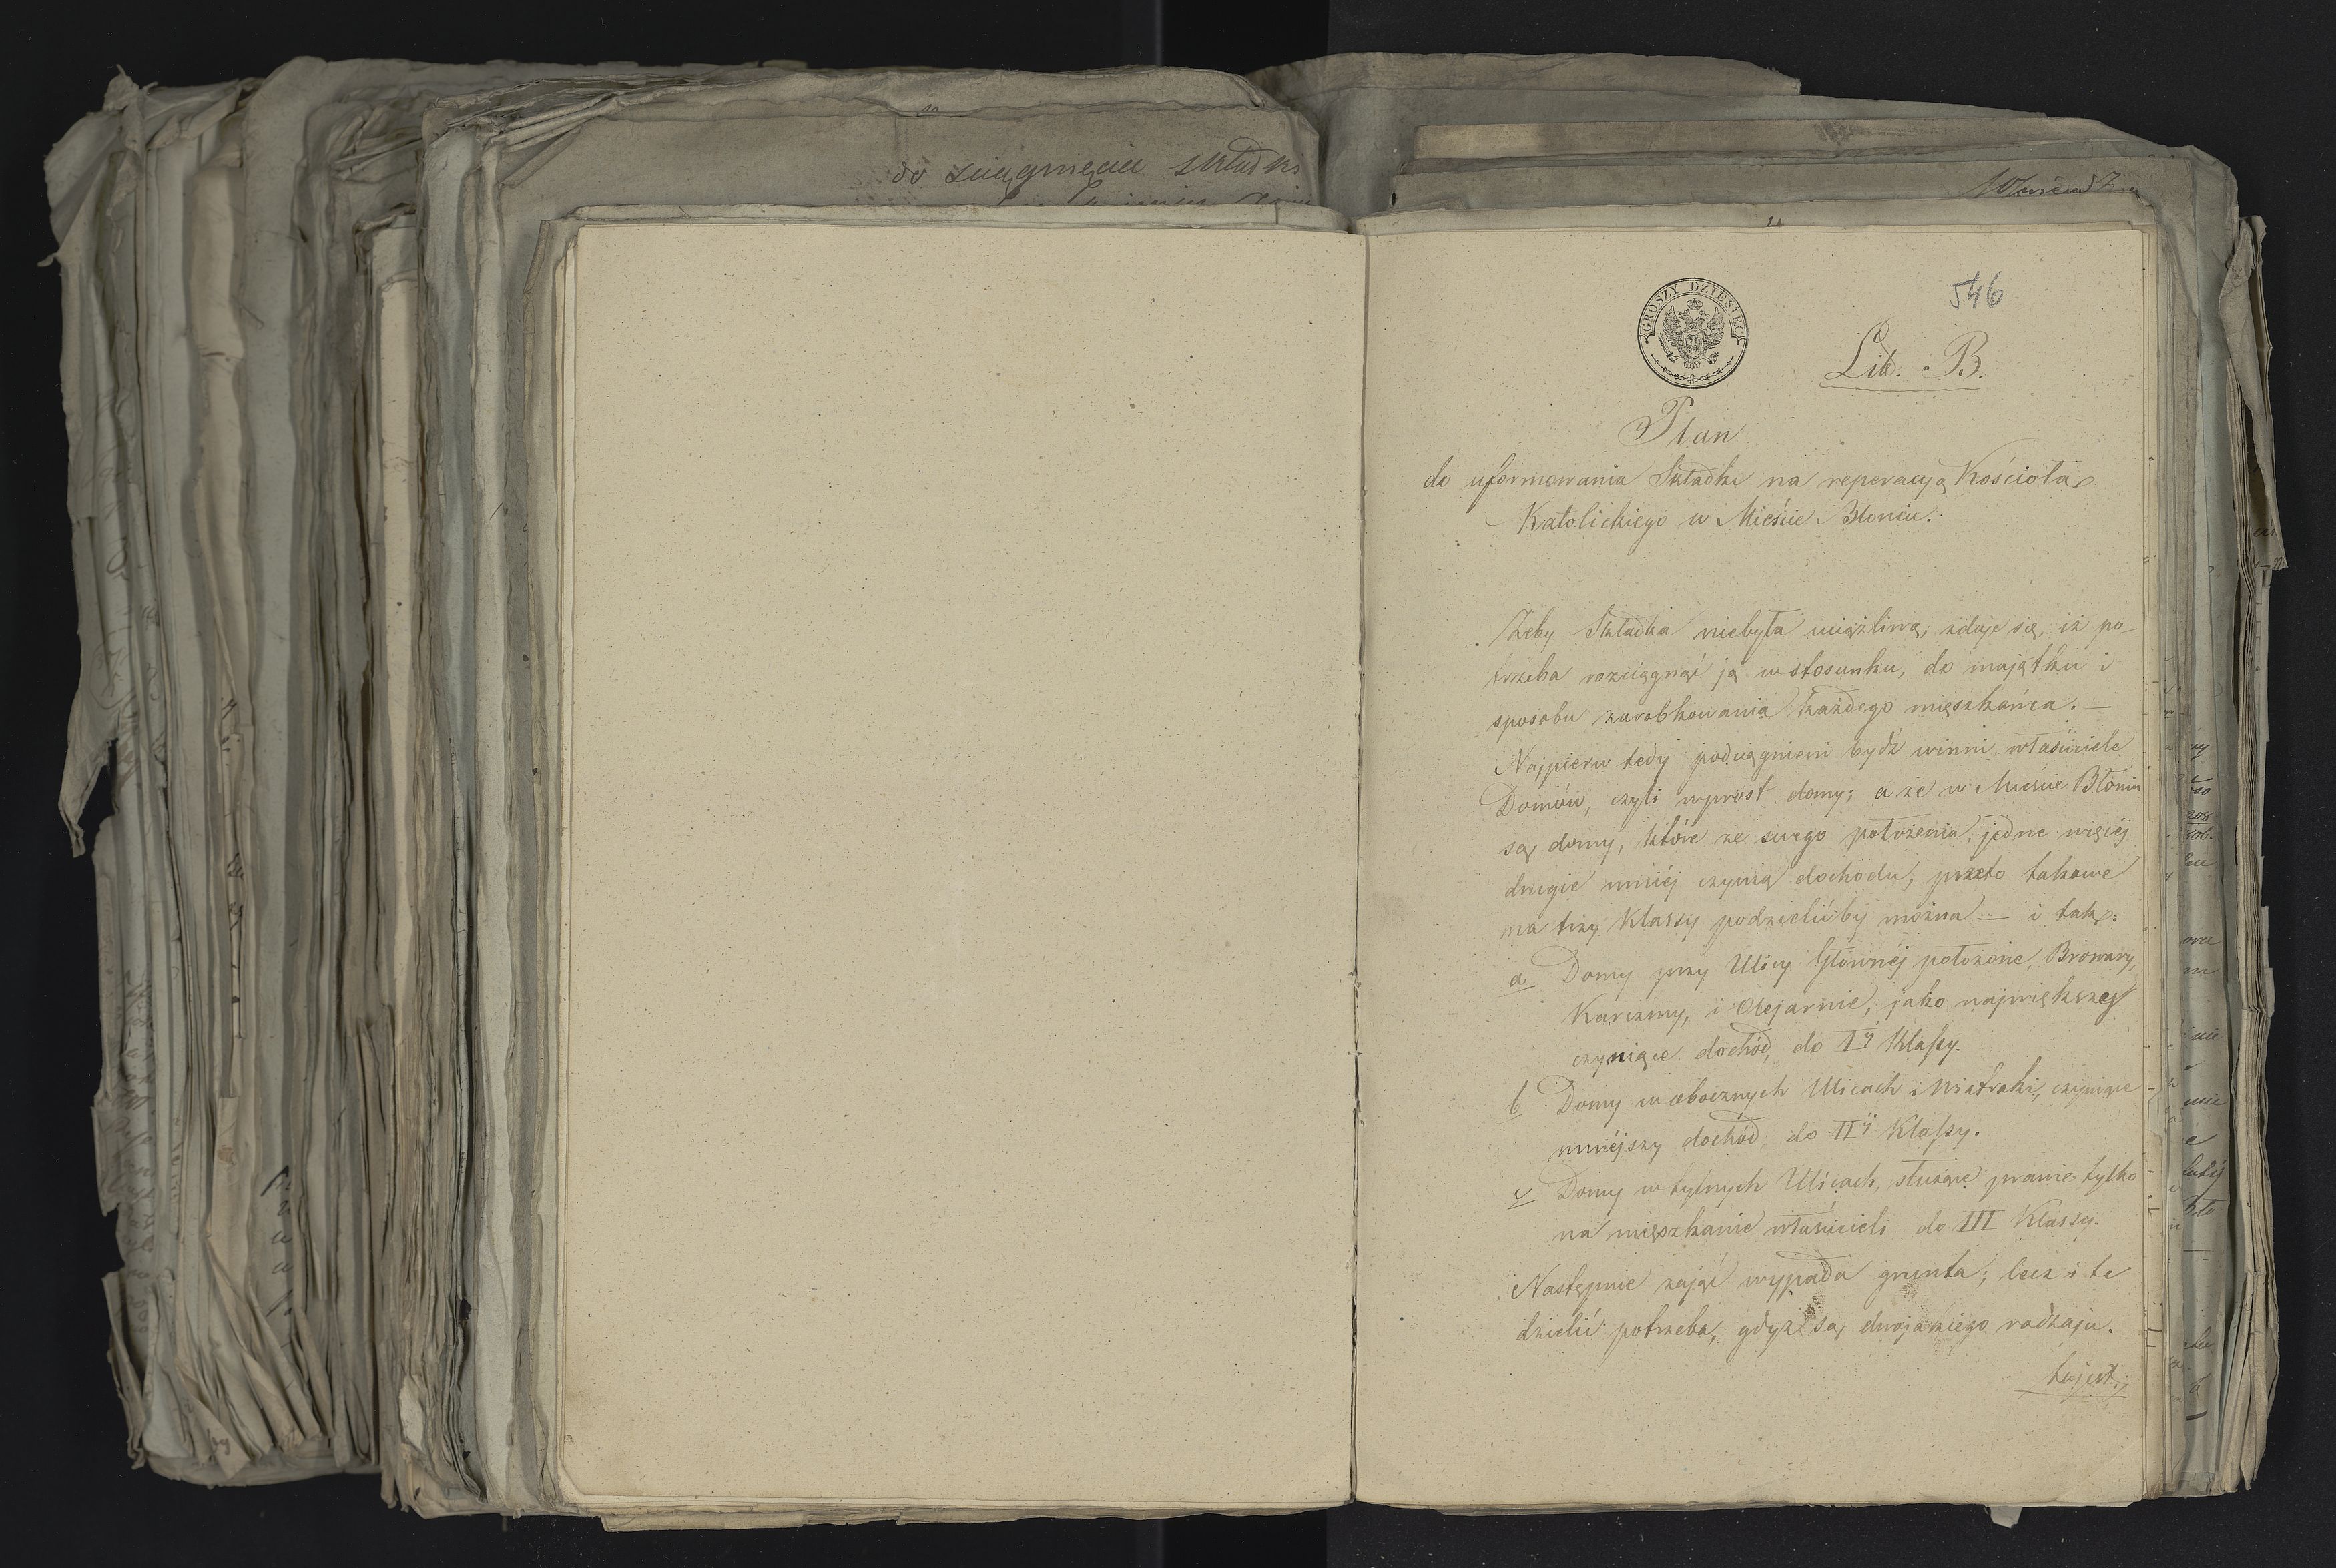 do sciągnięcia składki
546
GROSZY DZIESIĘĆ
Lit. B.
Plan
do uformowania Składki na reperacyą Kościoła
Katolickiego w Mieście Błoniu.
Żeby Składka niebyła uciążliwą; zdaje się, iż po-
trzeba rozciągnąć ją w stosunku, do majątku i
sposobu zarobkowania każdego mięszkańca. —
Najpierw tedy podciągnieni bydź winni właściciele
Domów, czyli wprost domy; a że w Mieście Błoniu
są domy, które ze swego położenia, jedne więcéj
drugie mniéj czynią dochodu, przeto takowe
na trzy Klassy podzielićby można — i tak:
a Domy przy Ulicy Głównéj położone, Browary,
Karczmy, i Olejarnie, jako największy
czyniące dochód, do Iéj Klassy.
b Domy w obocznych Ulicach i Wiatraki, czyniące
mniéjszy dochód, do IIéj Klassy.
c Domy w tylnych Ulicach, służące prawie tylko
na mięszkanie właścicieli do III Klassy.
Następnie zająć wypada grunta; lecz i te
dzielić potrzeba, gdyż są dwojakiego rodzaju.
to jest: